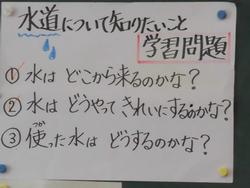 水道について知りたいこと
学習問題
① 水は どこから来るのかな？
② 水は どうやって きれいにするのかな？
③ 使った水は どうするのかな？